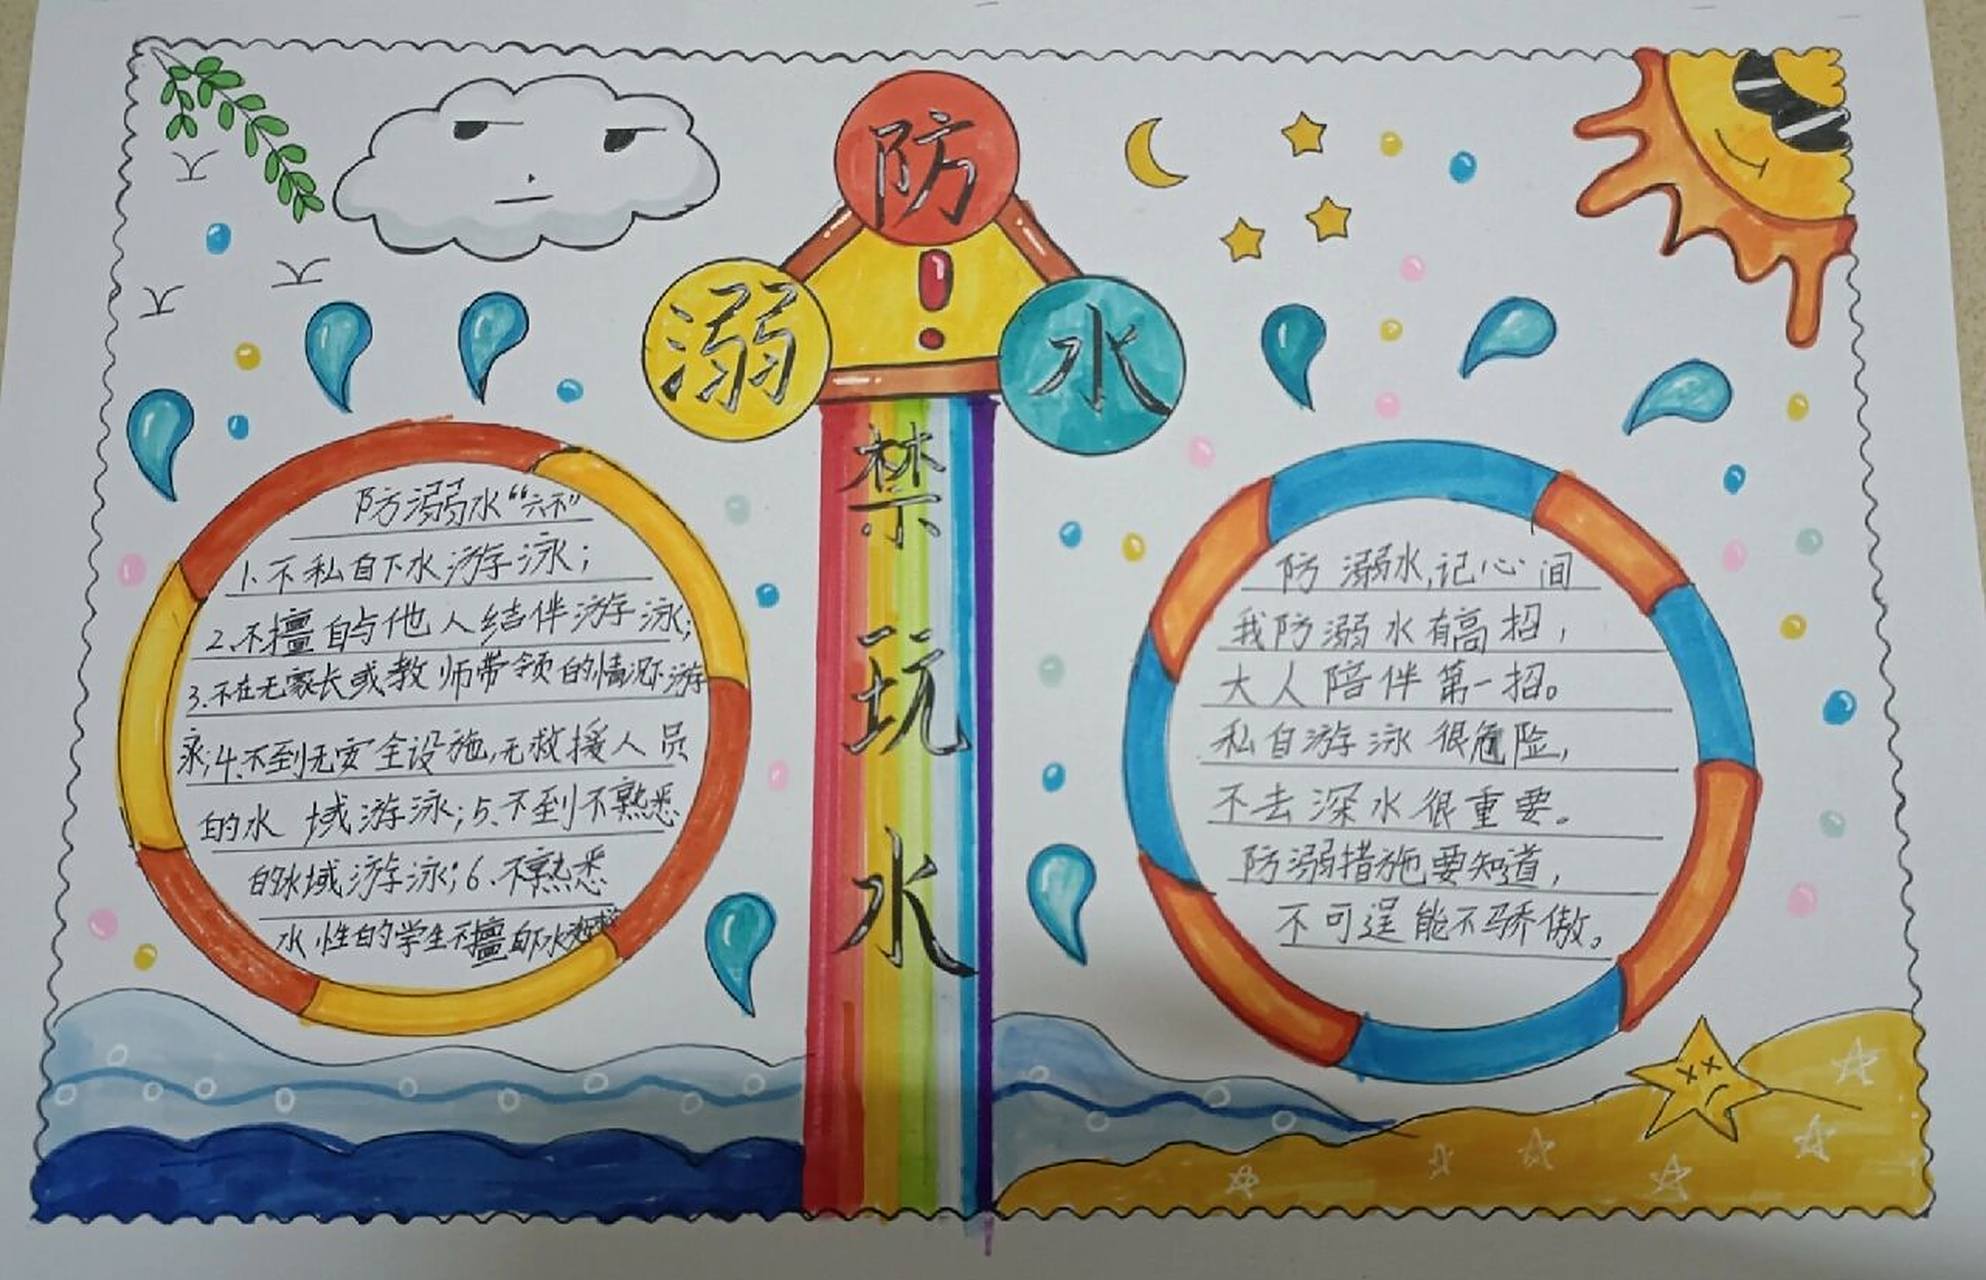 防
溺
水
!
禁
玩
水
防溺水“六不”
1.不私自下水游泳；
2.不擅自与他人结伴游泳；
3.不在无家长或教师带领的情况不游
泳；4.不到无安全设施，无救援人员
的水域游泳；5.不到不熟悉
的水域游泳；6.不熟悉
水性的学生不擅自下水
防溺水，记心间
我防溺水有高招，
大人陪伴第一招。
私自游泳很危险，
不去深水很重要。
防溺措施要知道，
不可逞能不骄傲。